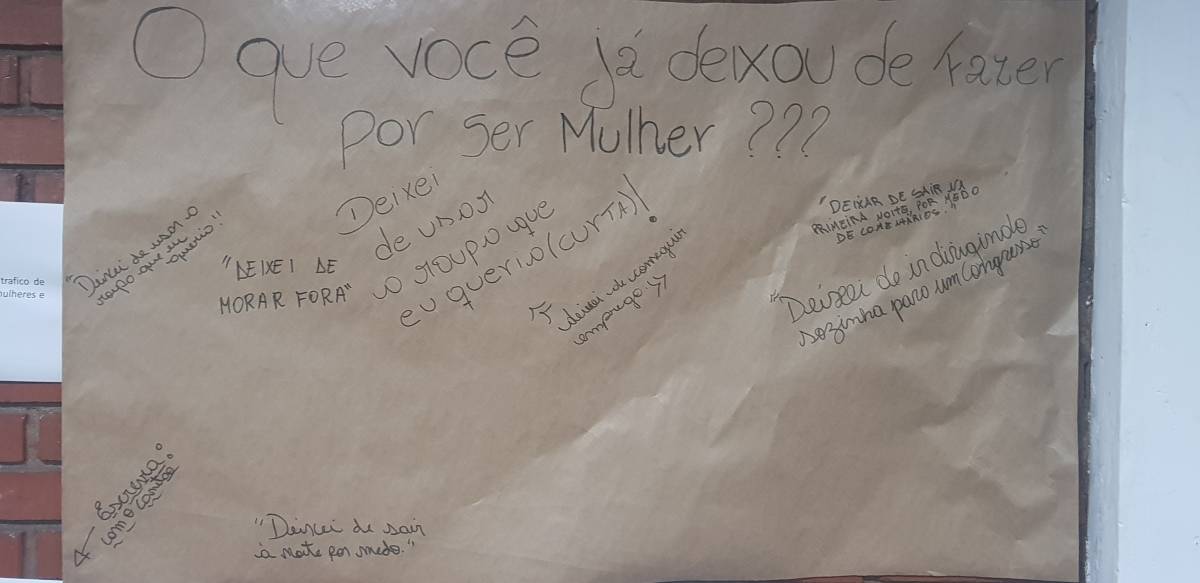 O que você já deixou de fazer
por ser Mulher ???
"Deixei de usar a
roupa que eu
queria!!"
"DEIXEI DE
MORAR FORA"
Deixei
de usar
a roupa que
eu queria (CURTA)!
"deixei de conseguir
emprego."
"DEIXAR DE SAIR NA
PRIMEIRA NOITE, POR MEDO
DE COMENTÁRIOS."
"Deixei de ir dirigindo
sozinha para um Congresso"
Escreva
com o
"Deixei de sair
à noite por medo."
trafico de
mulheres e